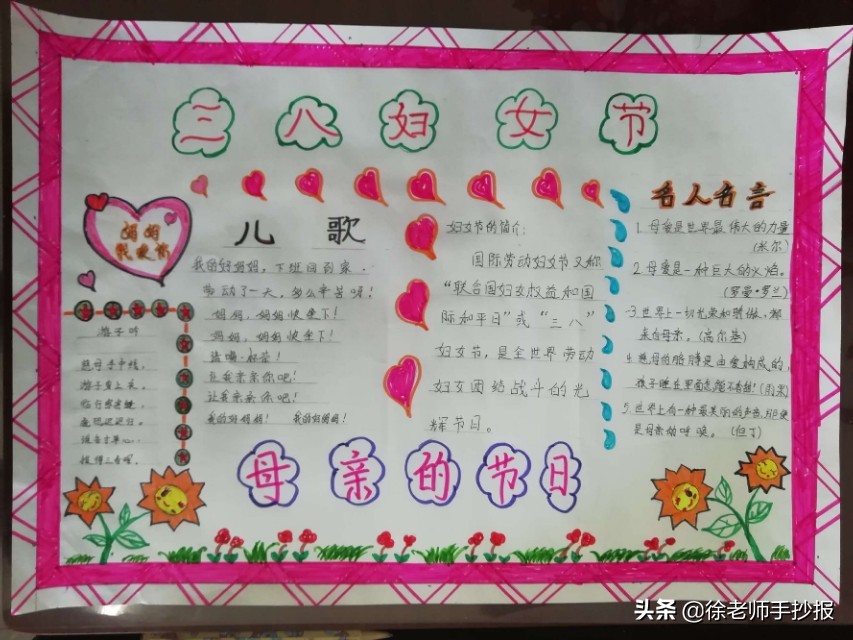 三八妇女节
妈妈
我爱你
儿歌
我的好妈妈，下班回到家，
劳动了一天，多么辛苦呀！
妈妈，妈妈快坐下！
妈妈，妈妈快坐下！
请喝一杯茶！
让我亲亲你吧！
让我亲亲你吧！
我的好妈妈！ 我的好妈妈！
游子吟
慈母手中线，
游子身上衣。
临行密密缝，
意恐迟迟归。
谁言寸草心，
报得三春晖。
妇女节的简介：
国际劳动妇女节又称
“联合国妇女权益和国
际和平日”或“三八”
妇女节，是全世界劳动
妇女团结战斗的光
辉节日。
名人名言
1.母爱是世界最伟大的力量
(米尔)
2.母爱是一种巨大的火焰。
(罗曼·罗兰)
3.世界上一切光荣和骄傲，都
来自母亲。(高尔基)
4.慈母的胳膊是由爱构成的，
孩子睡在里面怎能不香甜！(雨果)
5.世界上有一种最美丽的声音，那便
是母亲的呼唤。(但丁)
母亲的节日
头条 @徐老师手抄报